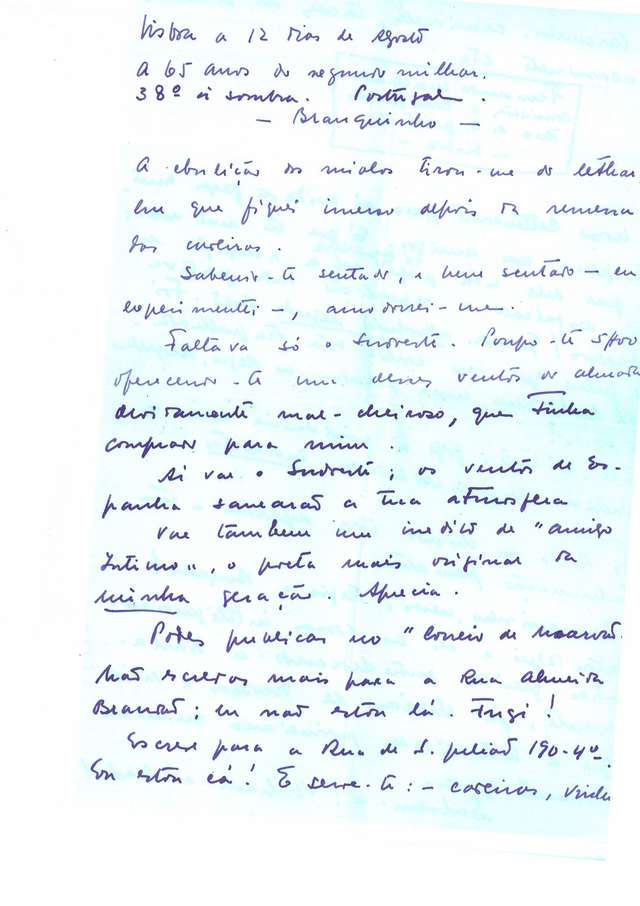 Lisboa a 12 dias de agosto
A 65 anos do segundo milhar.
38º à sombra. Portugal.
— Branquinho —
A ebulição dos miolos tirou-me do lethar
em que fiquei imerso depois da remessa
das
Sabendo-te sentado, e bem sentado — eu
experimentei —, amodorrei-me.
Faltava só o Sudoeste. Poupo-te 5$00
oferecendo-te um desses ventos de almada
devidamente mal-cheiroso, que Tinha
comprado para mim.
Aí vae o Sudoeste; os ventos de Es-
panha sanearão a tua atmosfera
Vae também um inedito de "amigo
Intimo", o poeta mais original da
minha geração. Aprecia.
Podes publicar no "Correio de
Não escrevas mais para a Rua Almeida
Brandão; eu não estou lá. Fugi!
Escreve para a Rua de S. Julião 190-4º.
Eu estou cá! E serve-te: —